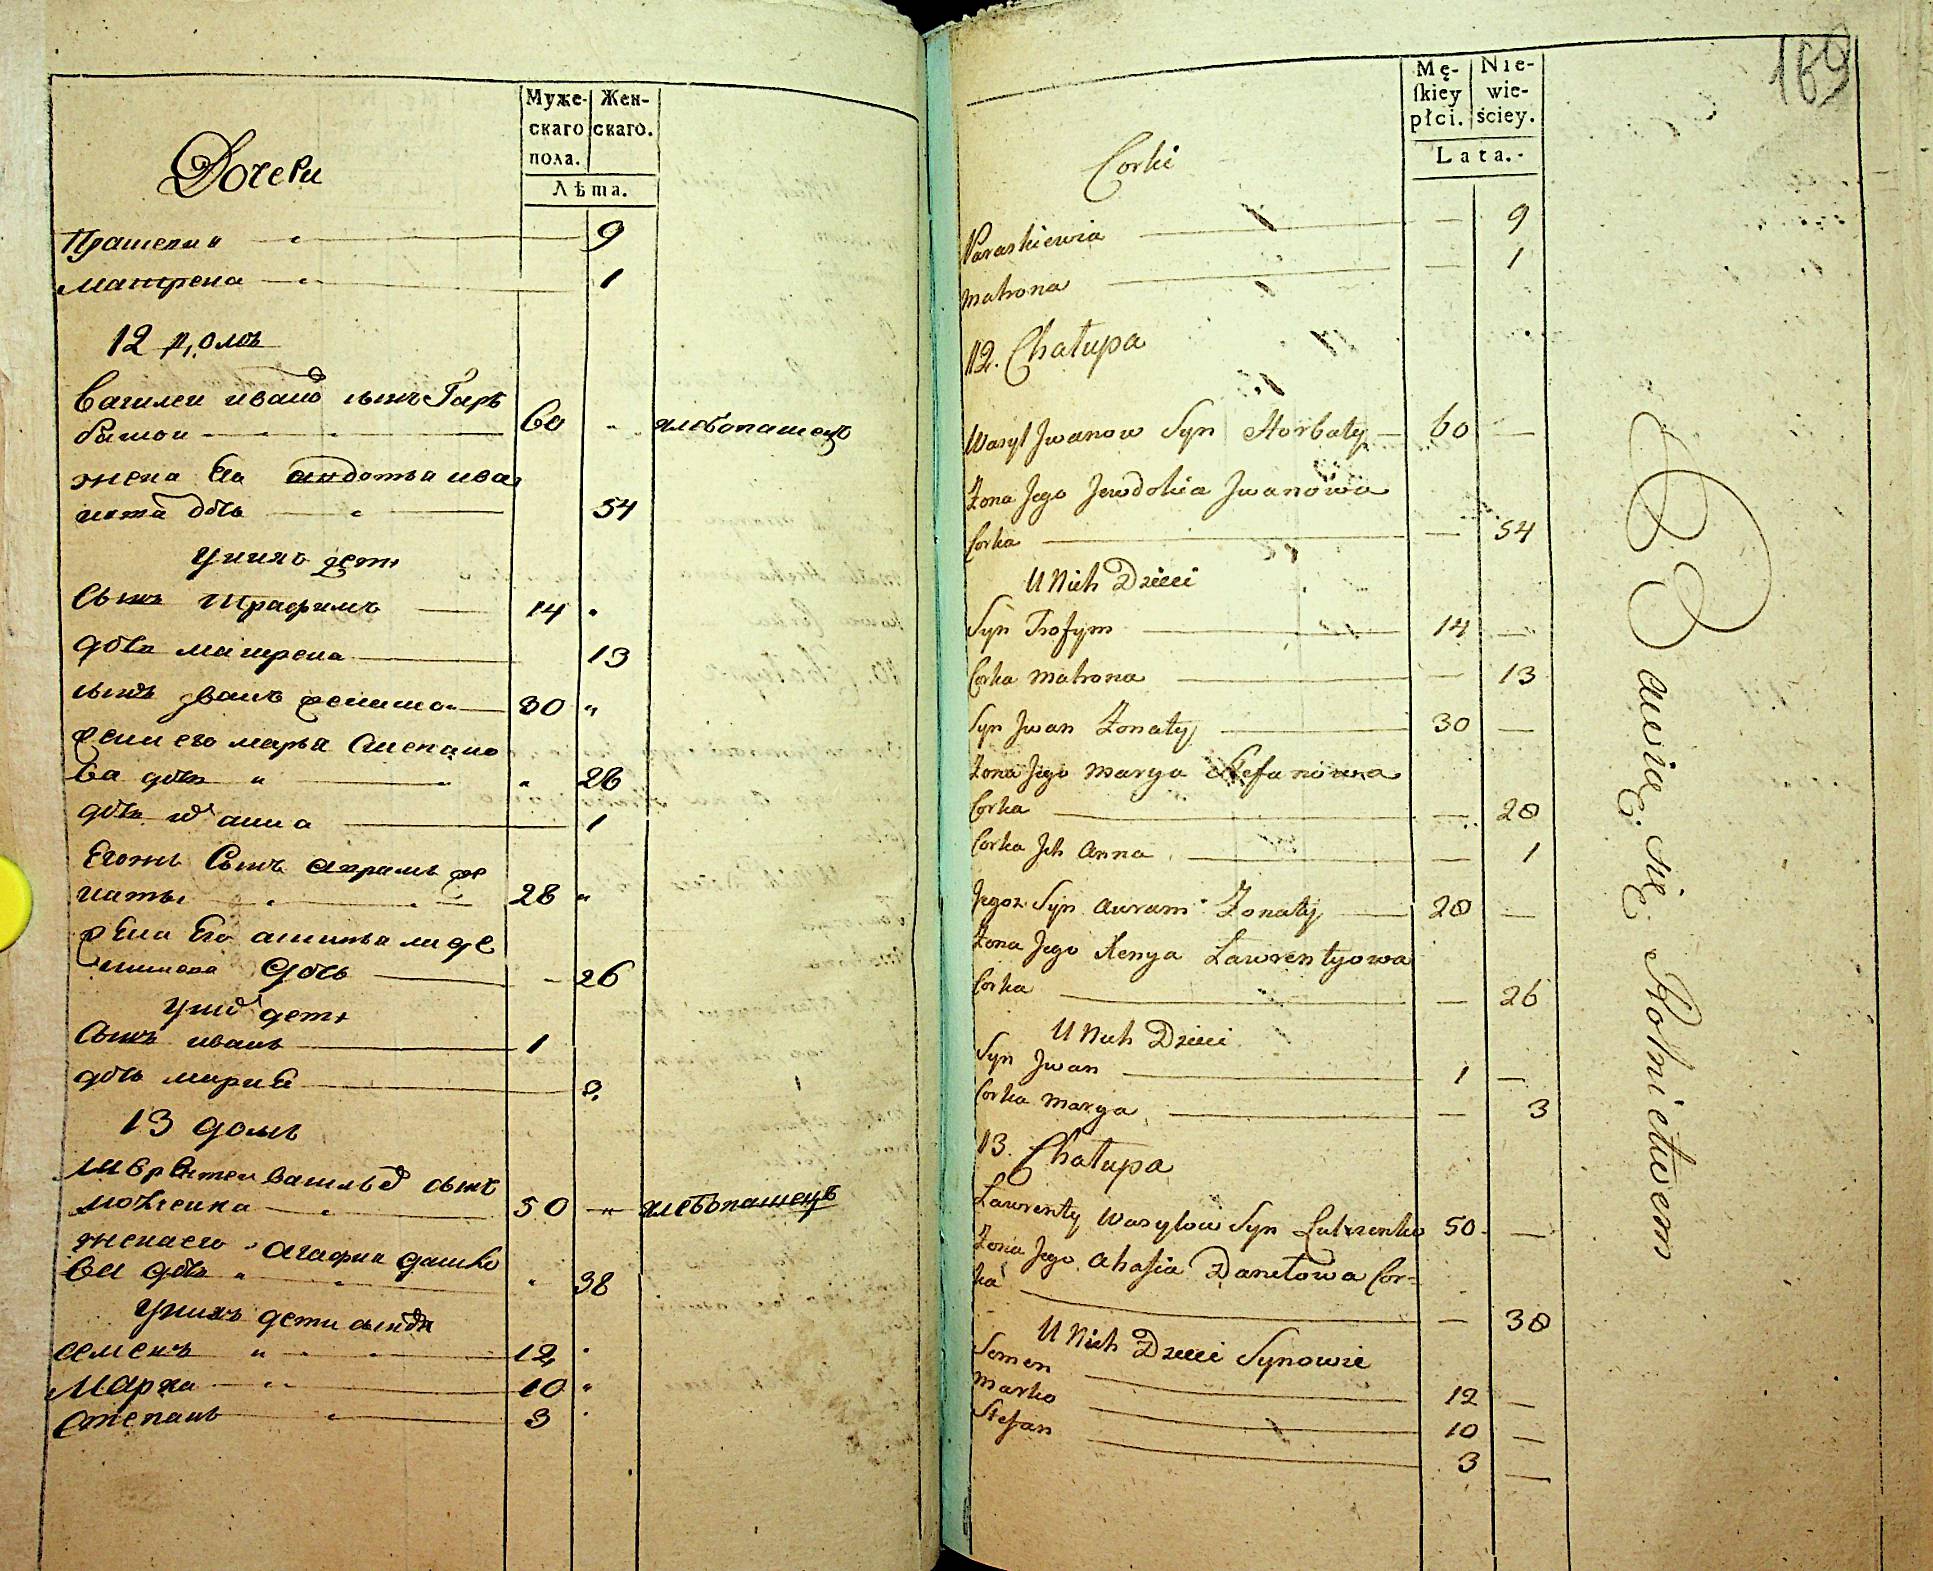 Муже-
скаго
пола.
Жен-
скаго.
Лѣта.
Дочери
9
матрена 1
12 домъ
Василеи ивано сынъ Гарь
батои 60 хлебопашецъ
жена Ею авдотья ива
дочь 54
унихъ дети
Сынъ трафимъ 14
дочь матрена 13
сынъ иванъ 30
жена его марья степано
ва дочь 26
дочь их анна 1
Егожъ Сынъ аврамъ же
натъ 28
жена Его
дочь 26
у них дети
Сынъ иванъ 1
дочь мария 3
13 домъ
лаврентеи василье сынъ
50 хлебопашецъ
жена его агафия
ва дочь 38
унихъ дети
семенъ 12
Марко 10
степанъ 3
169
Mę-
ſkiey
płci.
Nie-
wie-
ściey.
Lata.
Corki
Paraskiewia — 9
Matrona — 1
12. Chałupa
Wasyl Jwanow Syn Horbaty 60 —
Żona Jego Jewdokia Jwanowa
Corka — 54
U Nich Dzieci
Syn Trofym 14 —
Corka Matrona — 13
Syn Jwan Żonaty 30 —
Żona Jego Marya Stefanowa
Corka — 28
Corka Jch Anna — 1
Jegoż Syn Awram Żonaty 28 —
Żona Jego Xenya Lawrentyowa
Corka — 26
U Nich Dzieci
Syn Jwan 1 —
Corka Marya — 3
13. Chałupa
Lawrenty Wasylow Syn 50 —
Żona Jego Ahafia Daniłowa Cor=
ka — 38
U Nich Dzieci Synowie
Semen 12 —
Marko 10 —
Stefan 3 —
Bawią się Rolnictwem